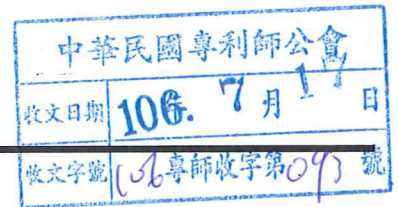 中華民國專利師公會
收文日期 106. 7 月 17 日
收文字號 106專師收字第093 號